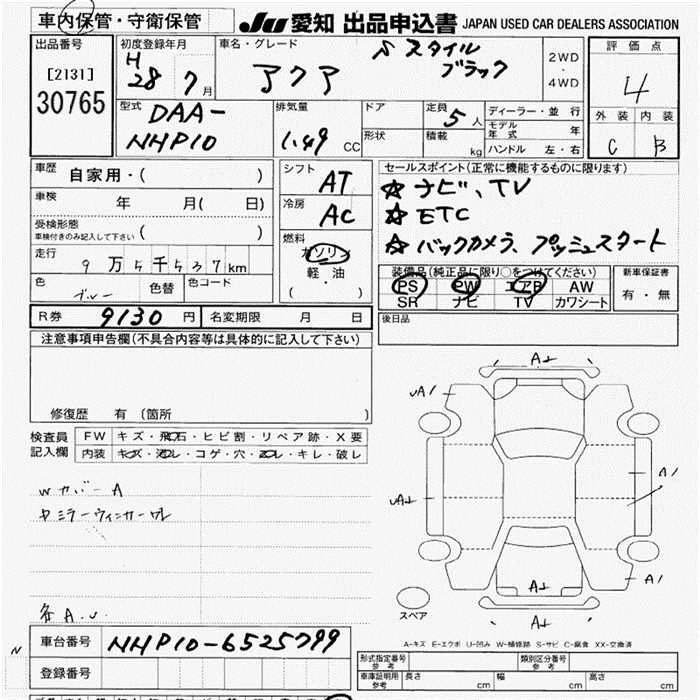 車内保管・守衛保管
JU 愛知 出品申込書 JAPAN USED CAR DEALERS ASSOCIATION
出品番号
[2131]
30765
初度登録年月
H
28 年 7 月
車名・グレード
アクア
Sスタイル
ブラック
2WD
・
4WD
評価点
4
外装 内装
C B
型式
DAA-
NHP10
排気量
1.49 CC
ドア
形状
定員 5 人
積載 kg
ディーラー・並行
モデル年式 年
ハンドル 左・右
車歴
自家用・( )
車検 年 月( 日)
受検形態
車検付きのみ記入して下さい ( )
走行 9万5千537km
色 ブルー 色替 色コード
シフト
AT
冷房
AC
燃料
ガソリン
軽・油
( )
セールスポイント(正常に機能するものに限ります)
☆ナビ、TV
☆ETC
☆バックカメラ、プッシュスタート
装備品(純正品に限り○をつけてください)
PS PW エアB AW
SR ナビ TV カワシート
新車保証書
有・無
R券 9130 円 名変期限 月 日
後日品
注意事項申告欄(不具合内容等は具体的に記入して下さい)
修復歴 有(箇所 )
検査員記入欄
FW キズ・飛石・ヒビ割・リペア跡・X要
内装 キズ・汚レ・コゲ・穴・スレ・キレ・破レ
Wカバー A
ミラーウィンカーワレ
各A.U
A1
A1
A1
スペア
A-キズ E-エクボ U-凹み W-補修跡 S-サビ C-腐食 XX-交換済
N
車台番号 NHP10-6525799
登録番号
形式指定番号 参考
類別区分番号 参考
車庫証明用 参考
長さ cm 幅 cm 高さ cm